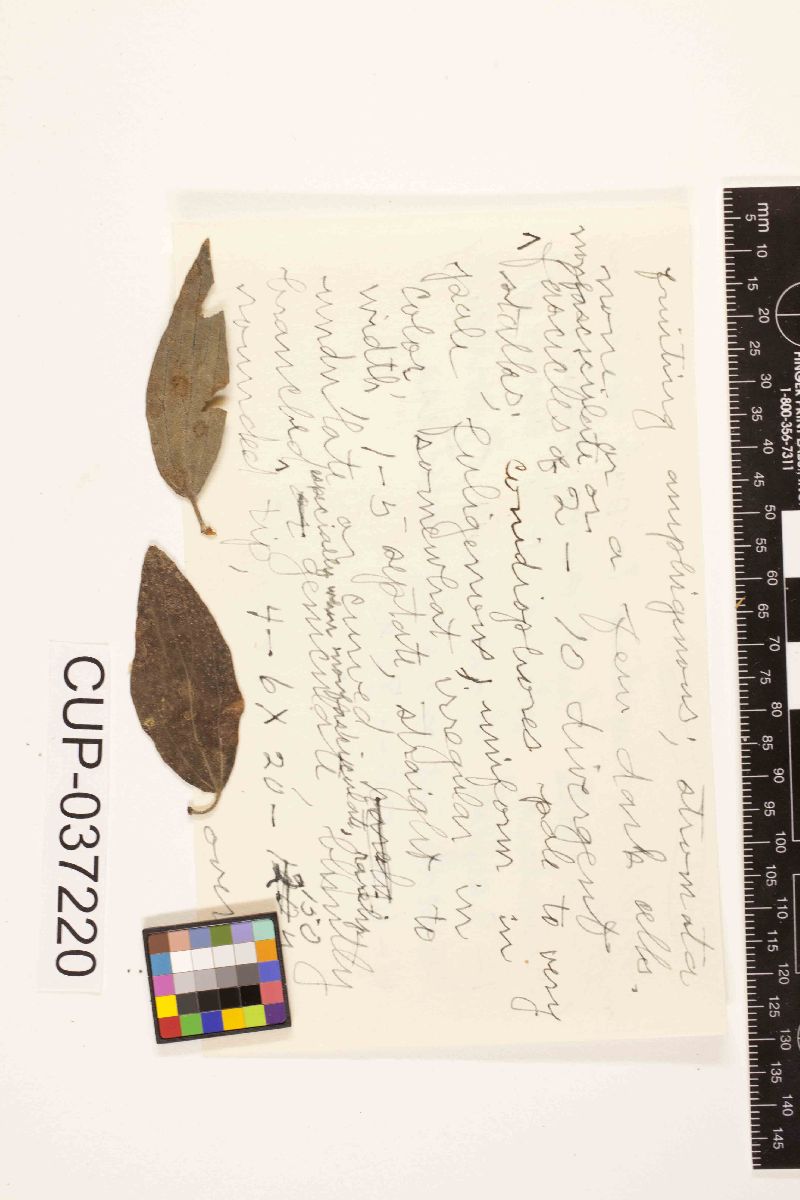 fruiting amphigenous; stromata
none or a few dark cells.
nonfasciculate or
fascicles of 2-10 divergent
stalks; conidiophores pale to very
pale fuligenous, uniform in
color, somewhat irregular in
width, 1-5-septate, straight to
undulate or curved
especially when
branched, geniculate, bluntly
rounded tip, 4-6 X 20-130
over
CUP-037220
mm
5 10 15 20 25 30 35 40 45 50 55 60 65 70 75 80 85 90 95 100 105 110 115 120 125 130 135 140 145
1-800-356-7311